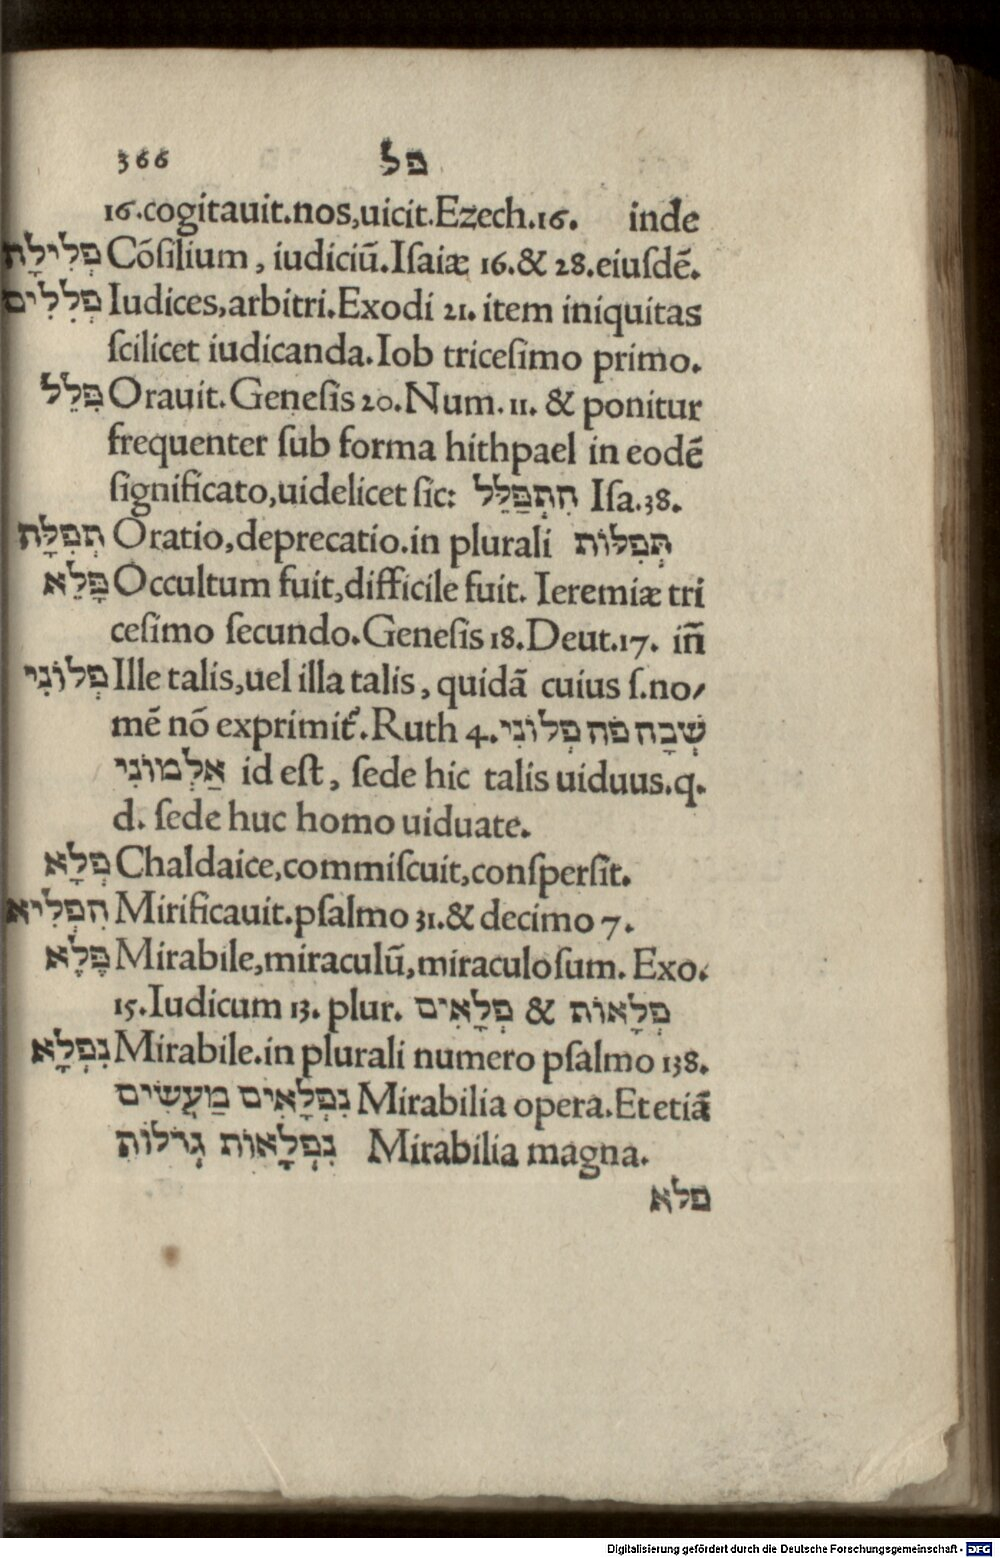 366 פל
16.cogitauit.nos,uicit.Ezech.16. inde
פְלִילָה Cōſilium, iudiciū.Iſaiæ 16.& 28.eiuſdē.
פְלִלִים Iudices,arbitri.Exodi 21. item iniquitas
ſcilicet iudicanda.Iob triceſimo primo.
פִּלֵל Orauit.Geneſis 20.Num.11. & ponitur
frequenter ſub forma hithpael in eodē
ſignificato,uidelicet ſic: הִתְפַּלֵּל Iſa.38.
תְפִלָּה Oratio,deprecatio.in plurali תְּפִלּוֹת
פָּלֵא Occultum fuit,difficile fuit. Ieremiæ tri
ceſimo ſecundo.Geneſis 18.Deut.17. iñ
פְלוֹנִי Ille talis,uel illa talis, quidã cuius ſ.no/
mē nō exprimit̃.Ruth 4. שְׁבָה פֹה פְלוֹנִי
אַלְמוֹנִי id eſt, ſede hic talis uiduus.q.
d. ſede huc homo uiduate.
פְלָא Chaldaice,commiſcuit,conſperſit.
הִפְלִיא Mirificauit.pſalmo 31.& decimo 7.
פֶּלֶא Mirabile,miraculū,miraculoſum. Exo.
15.Iudicum 13. plur. פְלָאִים & פְלָאוֹת
נִפְלָא Mirabile.in plurali numero pſalmo 138.
נִפְלָאִים מַעֲשִׂים Mirabilia opera.Et etiã
נִפְלָאוֹת גְדֹלוֹת Mirabilia magna.
פלא
Digitalisierung gefördert durch die Deutsche Forschungsgemeinschaft - DFG